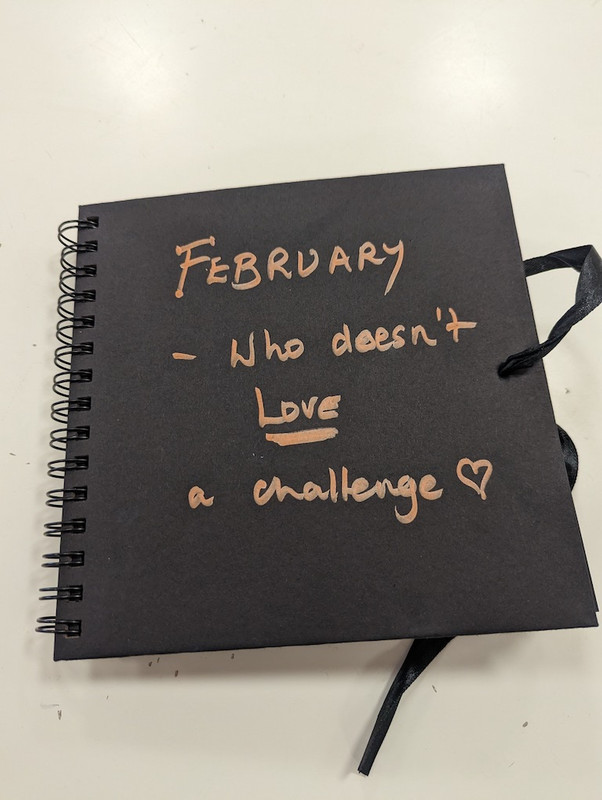 FEBRUARY
- Who doesn't
LOVE
a challenge ♡